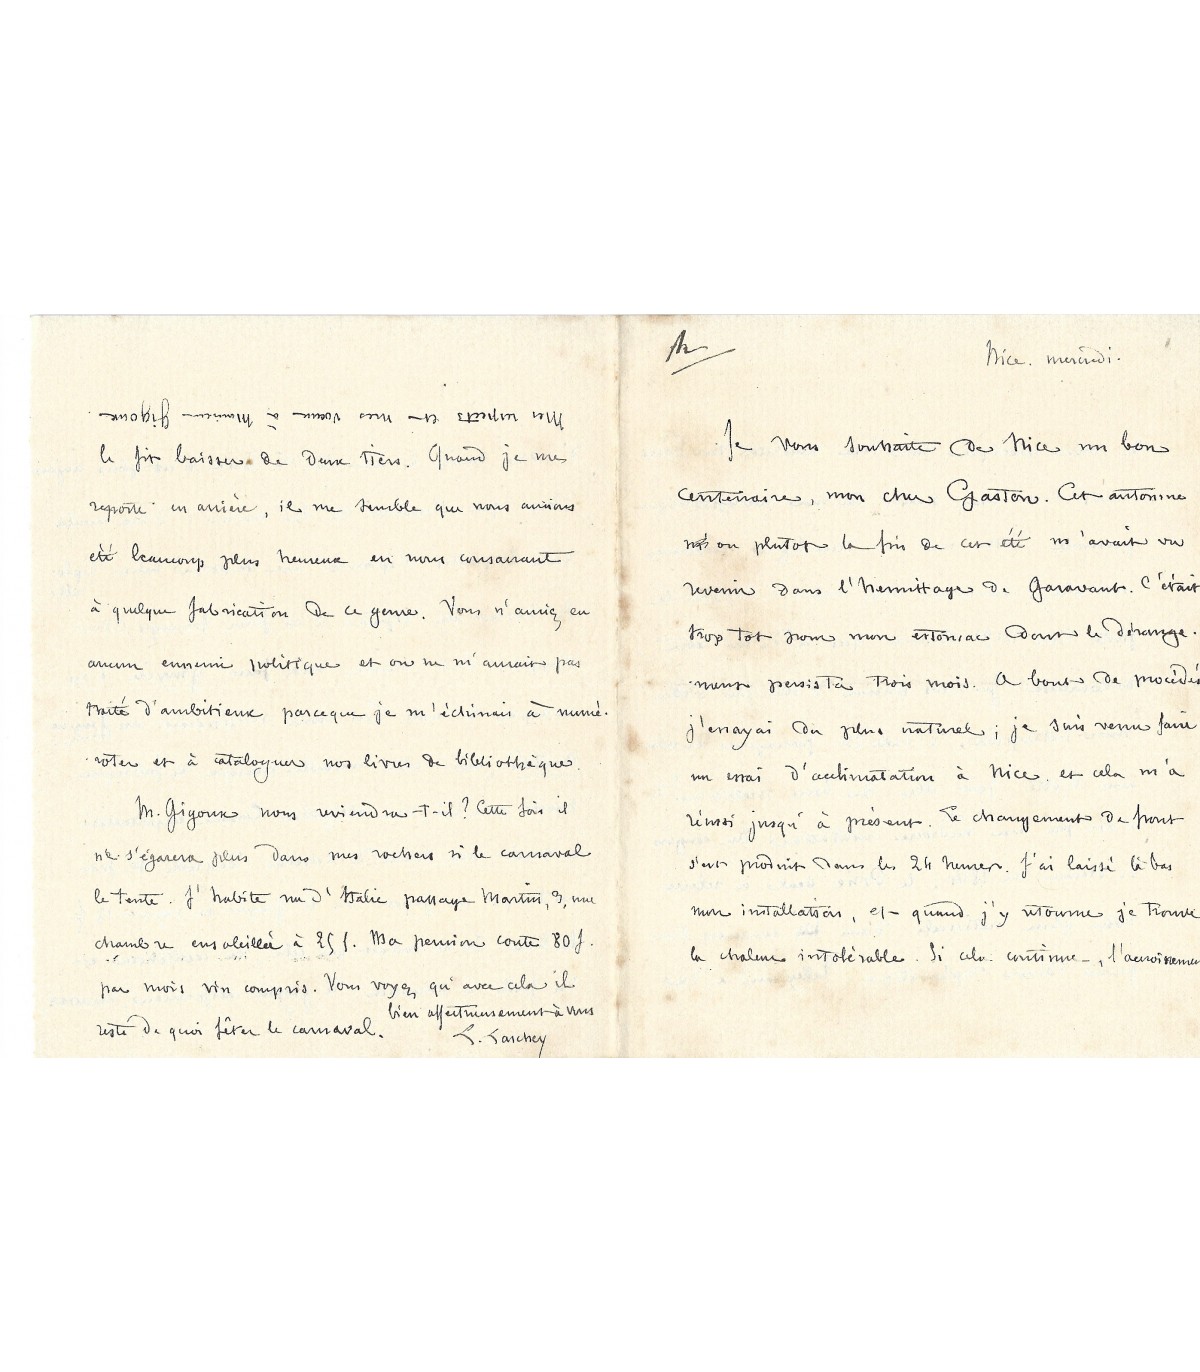 Nice. mercredi.
Je vous souhaite de Nice un bon
centenaire, mon cher Gaston. Cet automne
ou plutot la fin de cet été m'avait vu
revenir dans l'hermitage de Garavant. C'était
trop tot pour mon estomac dont le dérange-
ment persista trois mois. A bout de procédés
j'essayai du plus naturel ; je suis venu faire
un essai d'acclimatation à Nice. et cela m'a
réussi jusqu'à présent. Le changement de front
s'est produit dans les 24 heures. J'ai laissé là bas
mon installation, et quand j'y retourne je trouve
la chaleur intolérable. Si cela continue, l'accroissemen
Mes respects et mes voeux à Monsieur Gigoux.
le fit baisser de deux tiers. Quand je me
reporte en arrière, il me semble que nous aurions
été beaucoup plus heureux en nous consacrant
à quelque fabrication de ce genre. Vous n'auriez eu
aucun ennemi politique et on ne m'aurait pas
traité d'ambitieux parceque je m'échinais à numé-
roter et à cataloguer nos livres de bibliothèque.
M. Gigoux nous reviendra-t-il? Cette fois il
ne s'égarera plus dans mes rochers si le carnaval
le tente. J'habite rue d'Italie passage Martin, 3, une
chambre ensoleillée à 25 f. Ma pension coute 80 f.
par mois vin compris. Vous voyez qu'avec cela il
reste de quoi fêter le carnaval.
bien affectueusement à vous
L. Larchey